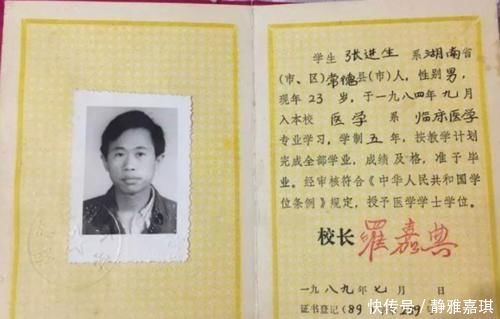 学生 张进生 系 湖南 省
(市、区) 常德 县(市)人，性别 男，
现年 23 岁，于一九八四年九月
入本校 医学 系 临床医学
专业学习，学制 五 年，按教学计划
完成全部学业，成绩及格，准予毕
业。经审核符合《中华人民共和国学
位条例》规定，授予医学学士学位。
校长 罗嘉典
一九八九年七月 日
证书登记(89) 259
快传号 / 静雅嘉琪